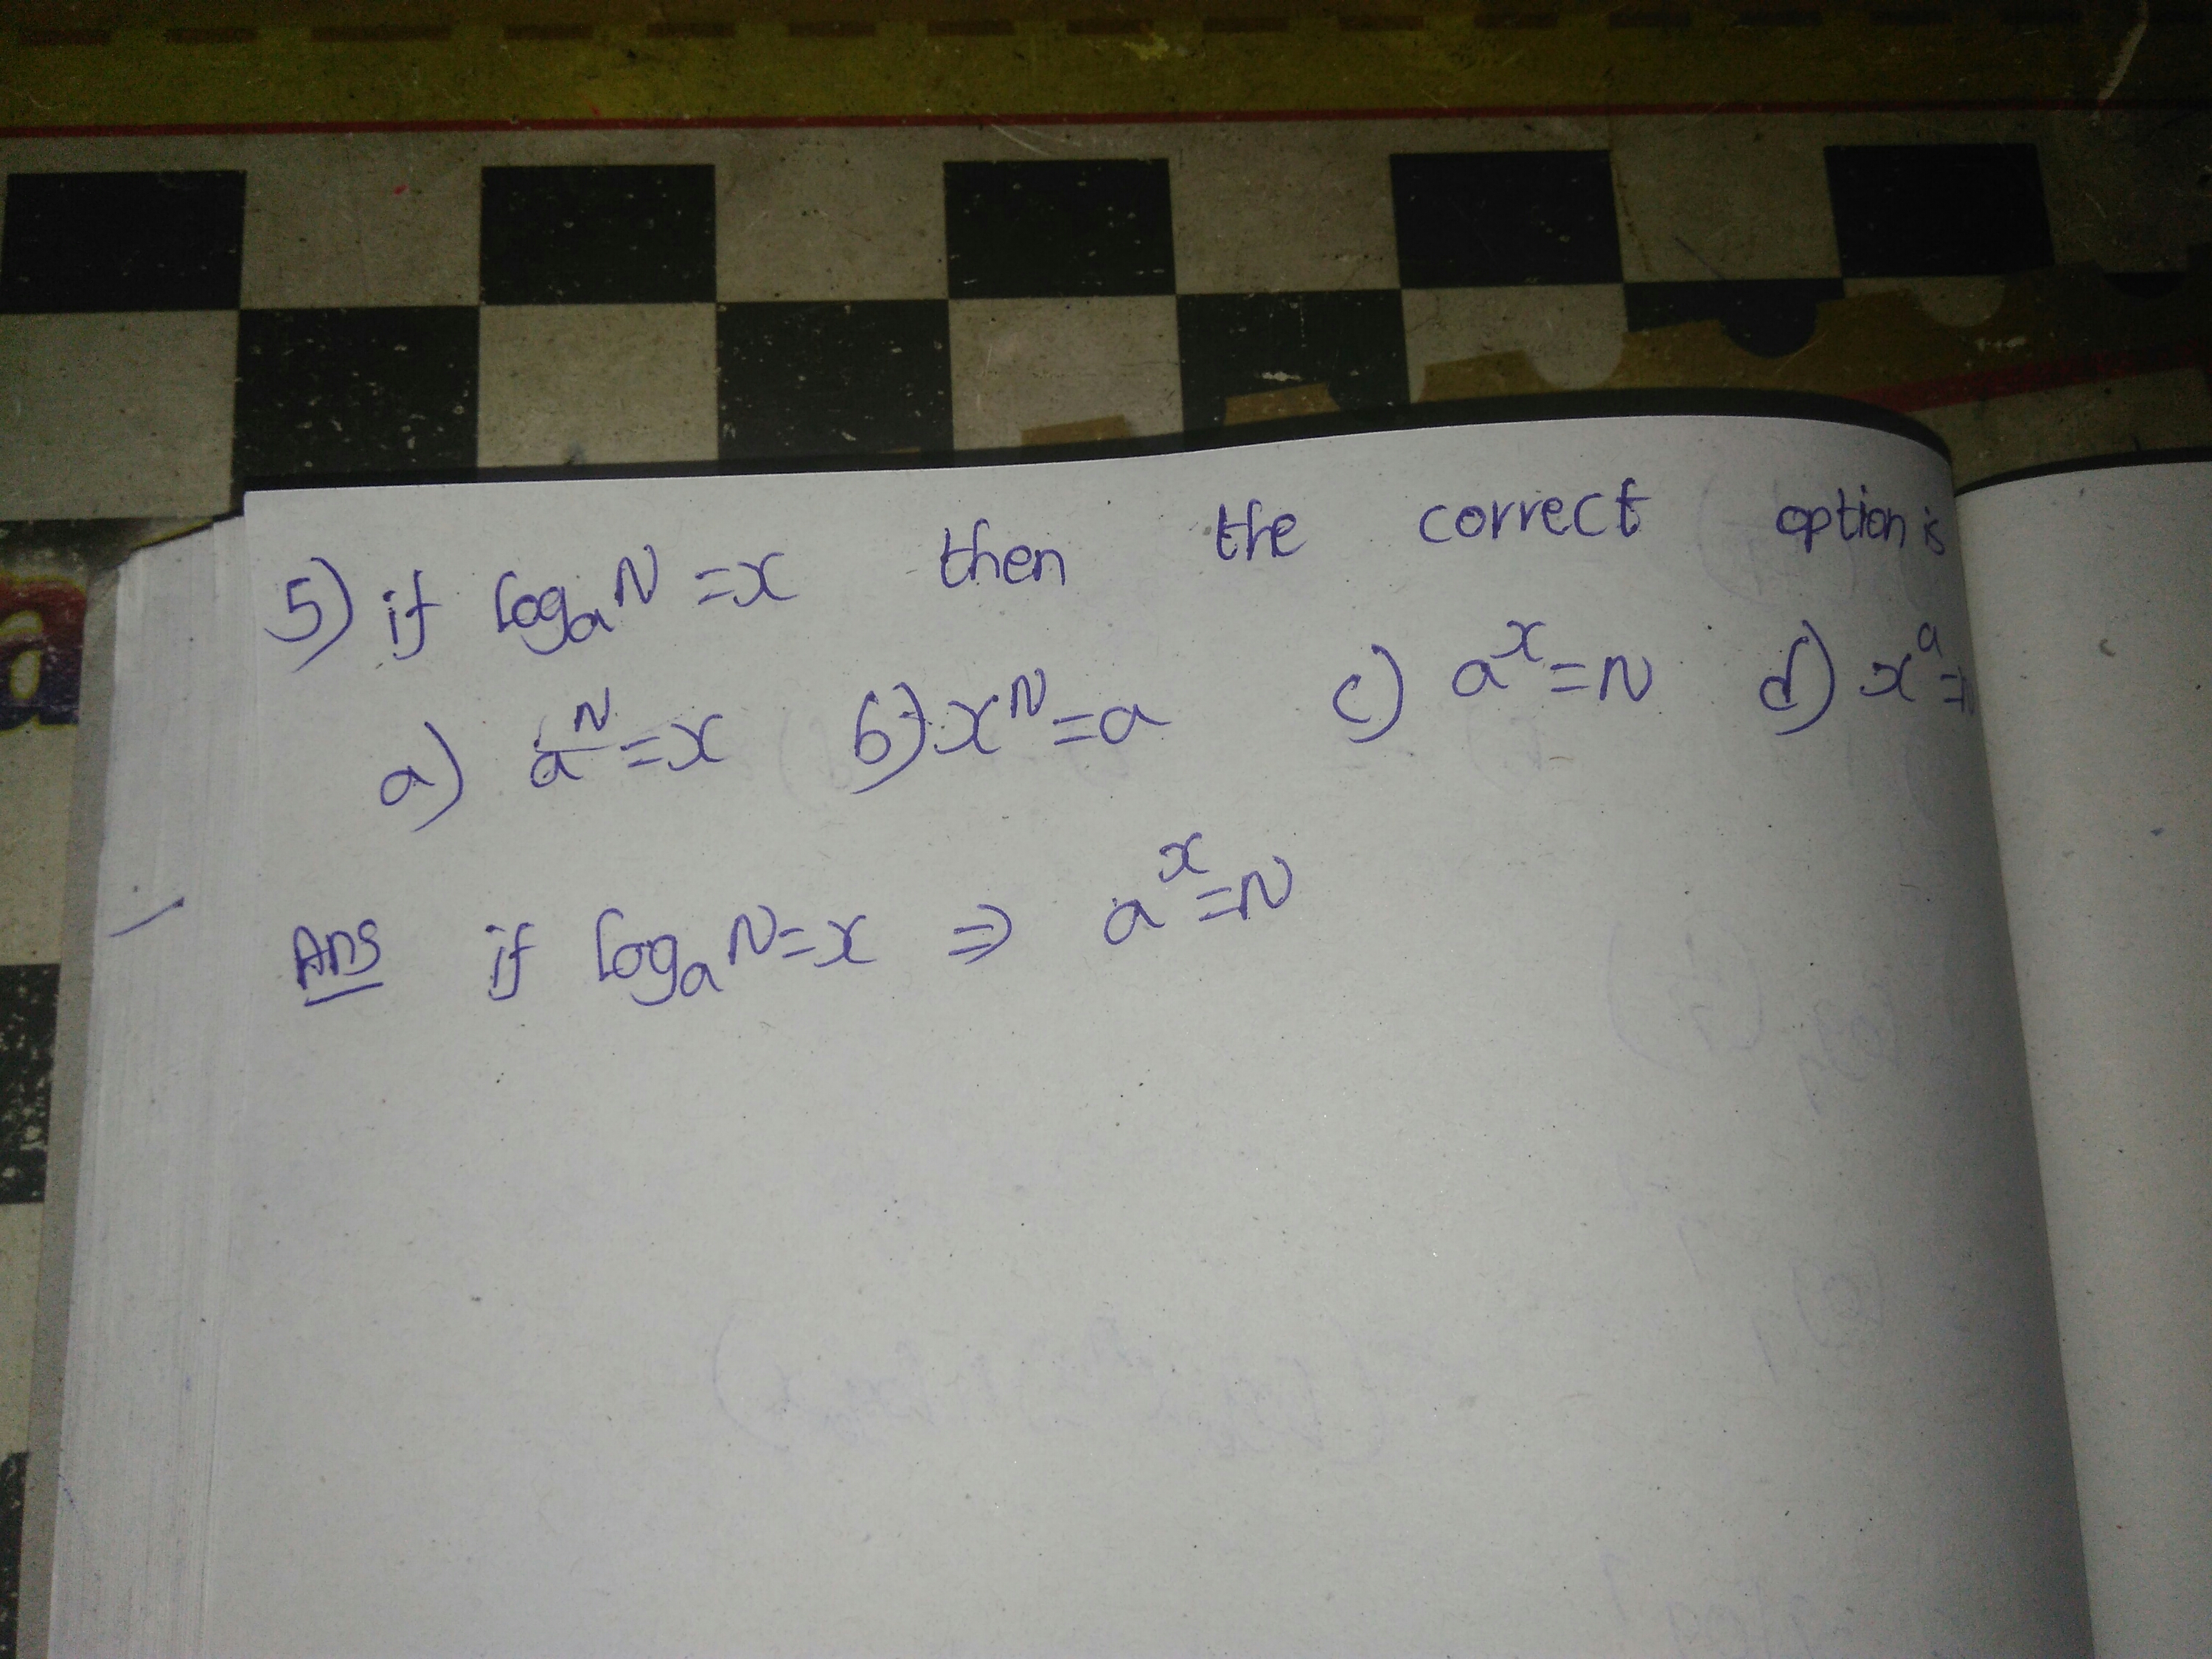 5) if logₐN = x then the correct option is
a) aᴺ = x b) xᴺ = a c) aˣ = N d) xᵃ =
Ans if logₐN = x ⇒ aˣ = N